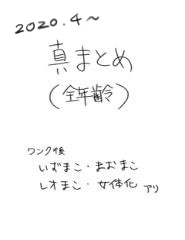 2020.4～
真まとめ
（全年齢）
ワンク後
いずまこ・まおまこ
レオまこ・女体化 アリ